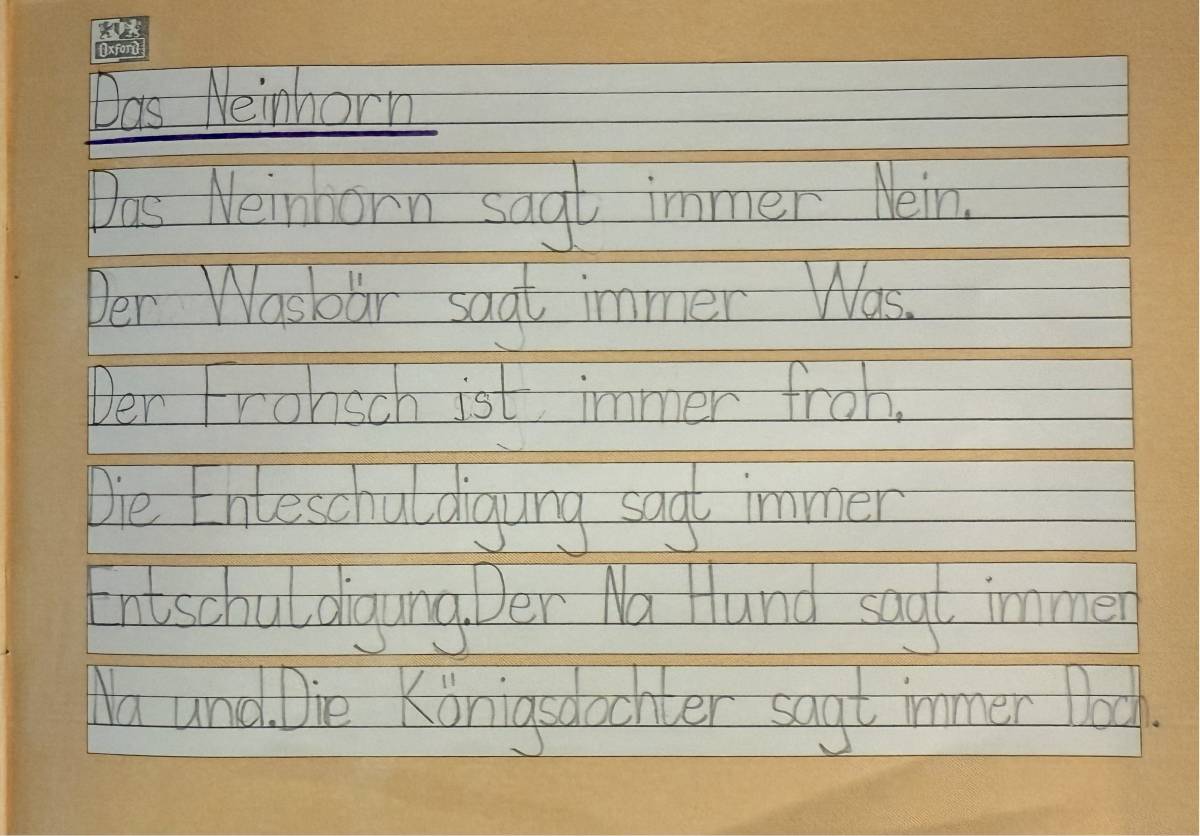 Oxford
Das Neinhorn
Das Neinhorn sagt immer Nein.
Der Wasbär sagt immer Was.
Der Frohsch ist immer froh.
Die Enteschuldigung sagt immer
Entschuldigung.Der Na Hund sagt immer
Na und.Die Königsdochter sagt immer Doch.